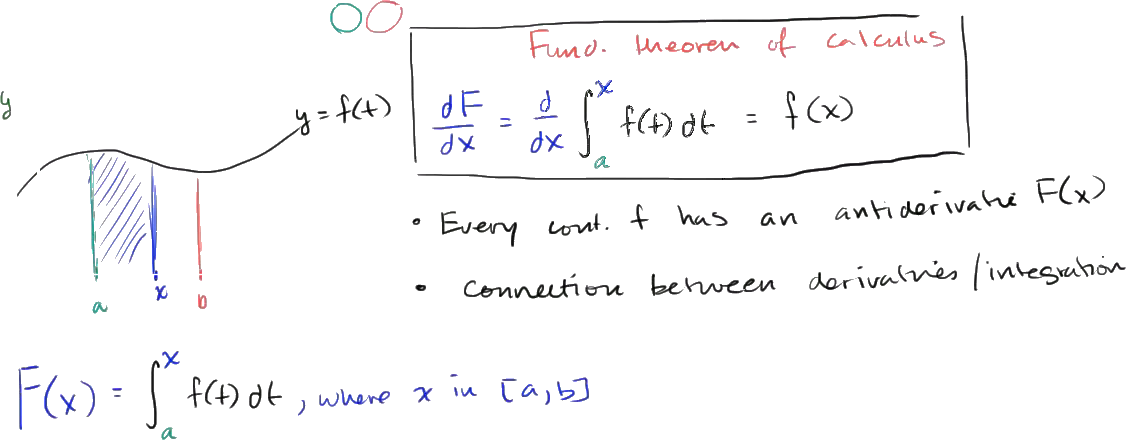 Fund. theorem of calculus
y
y = f(t)
dF/dx = d/dx ∫_a^x f(t) dt = f(x)
a x b
• Every cont. f has an antiderivative F(x)
• connection between derivatives/integration
F(x) = ∫_a^x f(t) dt, where x in [a,b]